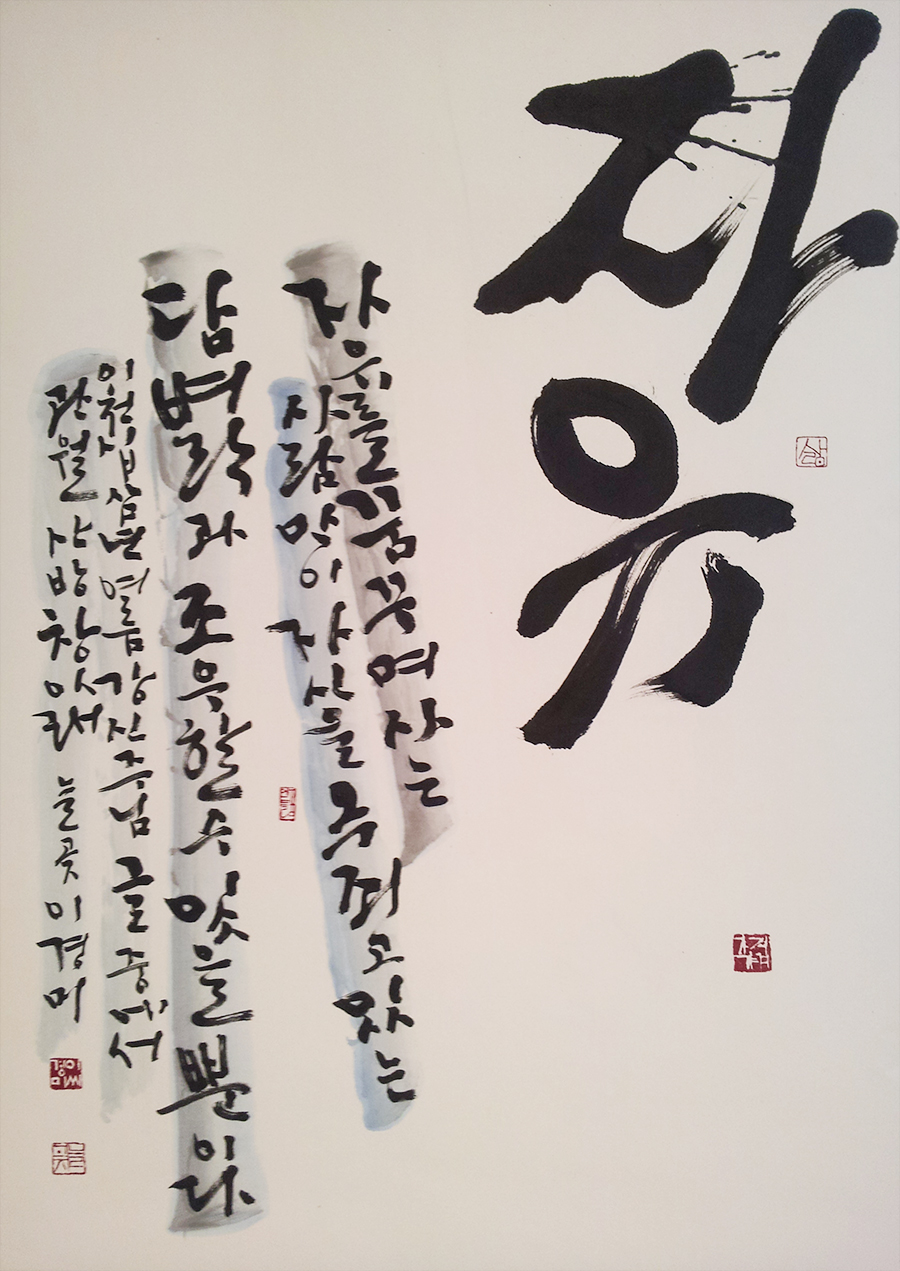 자유
삶
자유를 꿈꾸며 사는
사람만이 자신을 있는
담벼락과 조우할 수 있을 뿐이다
이천십삼년 여름 강신주님 글 중에서
관월 사방 창 아래서 늘곶 이경미